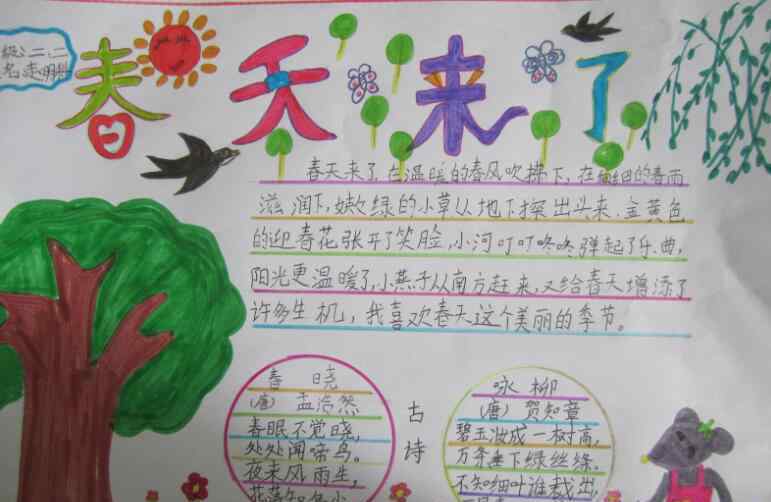 级:二.二
春天来了
春天来了,在温暖的春风吹拂下,在细细的春雨
滋润下,嫩绿的小草从地下探出头来,金黄色
的迎春花张开了笑脸,小河叮叮咚咚弹起了乐曲,
阳光更温暖了,小燕子从南方赶来,又给春天增添了
许多生机,我喜欢春天这个美丽的季节。
春 晓
(唐) 孟浩然
春眠不觉晓,
处处闻啼鸟。
夜来风雨生,
古诗
咏柳
(唐) 贺知章
碧玉妆成一树高,
万条垂下绿丝绦。
不知细叶谁裁出